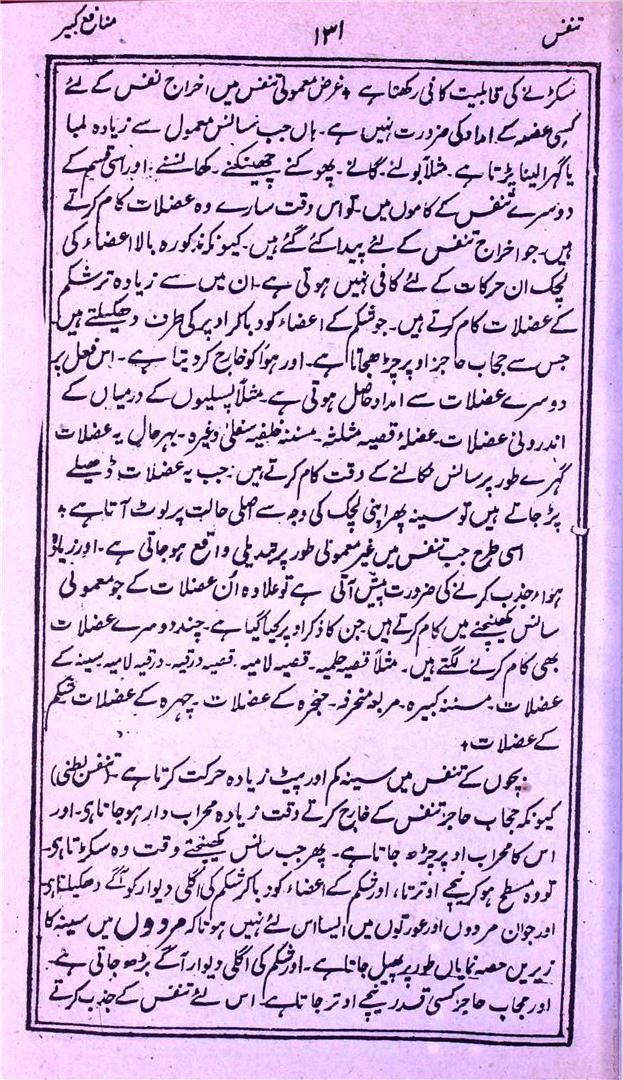 تنفس
۱۳۱
منافع کبیر
سکڑنے کی قابلیت کافی رکھتا ہے + غرض معمولی تنفس میں اخراج نفس کے لئے
کسی عضو کے امداد کی ضرورت نہیں ہے۔ ہاں جب سانس معمول سے زیادہ لمبا
یا گہرا لینا پڑتا ہے۔ مثلاً بولنے۔ گانے۔ پھوکنے چھینکنے۔ کھانسنے۔ اور اسی قسم کے
دوسرے تنفس کے کاموں میں۔ تو اس وقت سارے وہ عضلات کام کرتے
ہیں۔ جو اخراج تنفس کے لئے پیدا کئے گئے ہیں۔ کیونکہ مذکورہ بالا اعضاء کی
لچک ان حرکات کے لئے کافی نہیں ہوتی ہے۔ ان میں سے زیادہ تر شکم
کے عضلات کام کرتے ہیں۔ جو شکم کے اعضاء کو دبا کر اوپر کی طرف دھکیلتے ہیں۔
جس سے حجاب حاجز اوپر چڑھجاتا ہے۔ اور ہوا کو خارج کر دیتا ہے۔ اس فعل پر
دوسرے عضلات سے امداد حاصل ہوتی ہے۔ مثلاً پسلیوں کے درمیاں کے
اندرونی عضلات۔ عضلۂ قصیہ مثلثہ۔ مسننہ خلفیہ سفلیٰ وغیرہ۔ بہرحال یہ عضلات
گہرے طور پر سانس نکالنے کے وقت کام کرتے ہیں۔ جب یہ عضلات ڈھیلے
پڑ جاتے ہیں تو سینہ پھر اپنی لچک کی وجہ سے اصلی حالت پر لوٹ آتا ہے +
اسی طرح جب تنفس میں غیر معمولی طور پر تبدیلی واقع ہو جاتی ہے۔ اور زیادہ
ہواء جذب کرنے کی ضرورت پیش آتی ہے تو علاوہ اُن عضلات کے جو معمولی
سانس کھینچنے میں کام کرتے ہیں جن کا ذکر اوپر کیا گیا ہے۔ چند دوسرے عضلات
بھی کام کرنے لگتے ہیں۔ مثلاً قصیہ حلمیہ۔ قصیہ لامیہ۔ قصیہ درقیہ۔ درقیہ لامیہ سینہ کے
عضلات۔ مسننہ کبیرہ۔ مربعہ منحرفہ۔ حنجرہ کے عضلات۔ چہرہ کے عضلات شکم
کے عضلات +
بچوں کے تنفس میں سینہ کم اور پیٹ زیادہ حرکت کرتا ہے۔ (تنفس بطنی)
کیونکہ حجاب حاجز تنفس کے خارج کرتے وقت زیادہ محراب دار ہو جاتا ہی۔ اور
اس کا محراب اوپر چڑھ جاتا ہے۔ پھر جب سانس کھینچتے وقت وہ سکڑتا ہی۔
تو وہ مسطح ہو کر نیچے اوترتا، اور شکم کے اعضاء کو دبا کر شکم کی اگلی دیوار کو آگے دھکیلتا ہی
اور جوان مردوں اور عورتوں میں ایسا اس لئے نہیں ہوتا کہ مردوں میں سینہ کا
زیریں حصہ نمایاں طور پر پھیل جاتا ہے۔ اور شکم کی اگلی دیوار آگے بڑھ جاتی ہے۔
اور حجاب حاجز کسی قدر نیچے اوتر جاتا ہے۔ اس لئے تنفس کے جذب کرتے